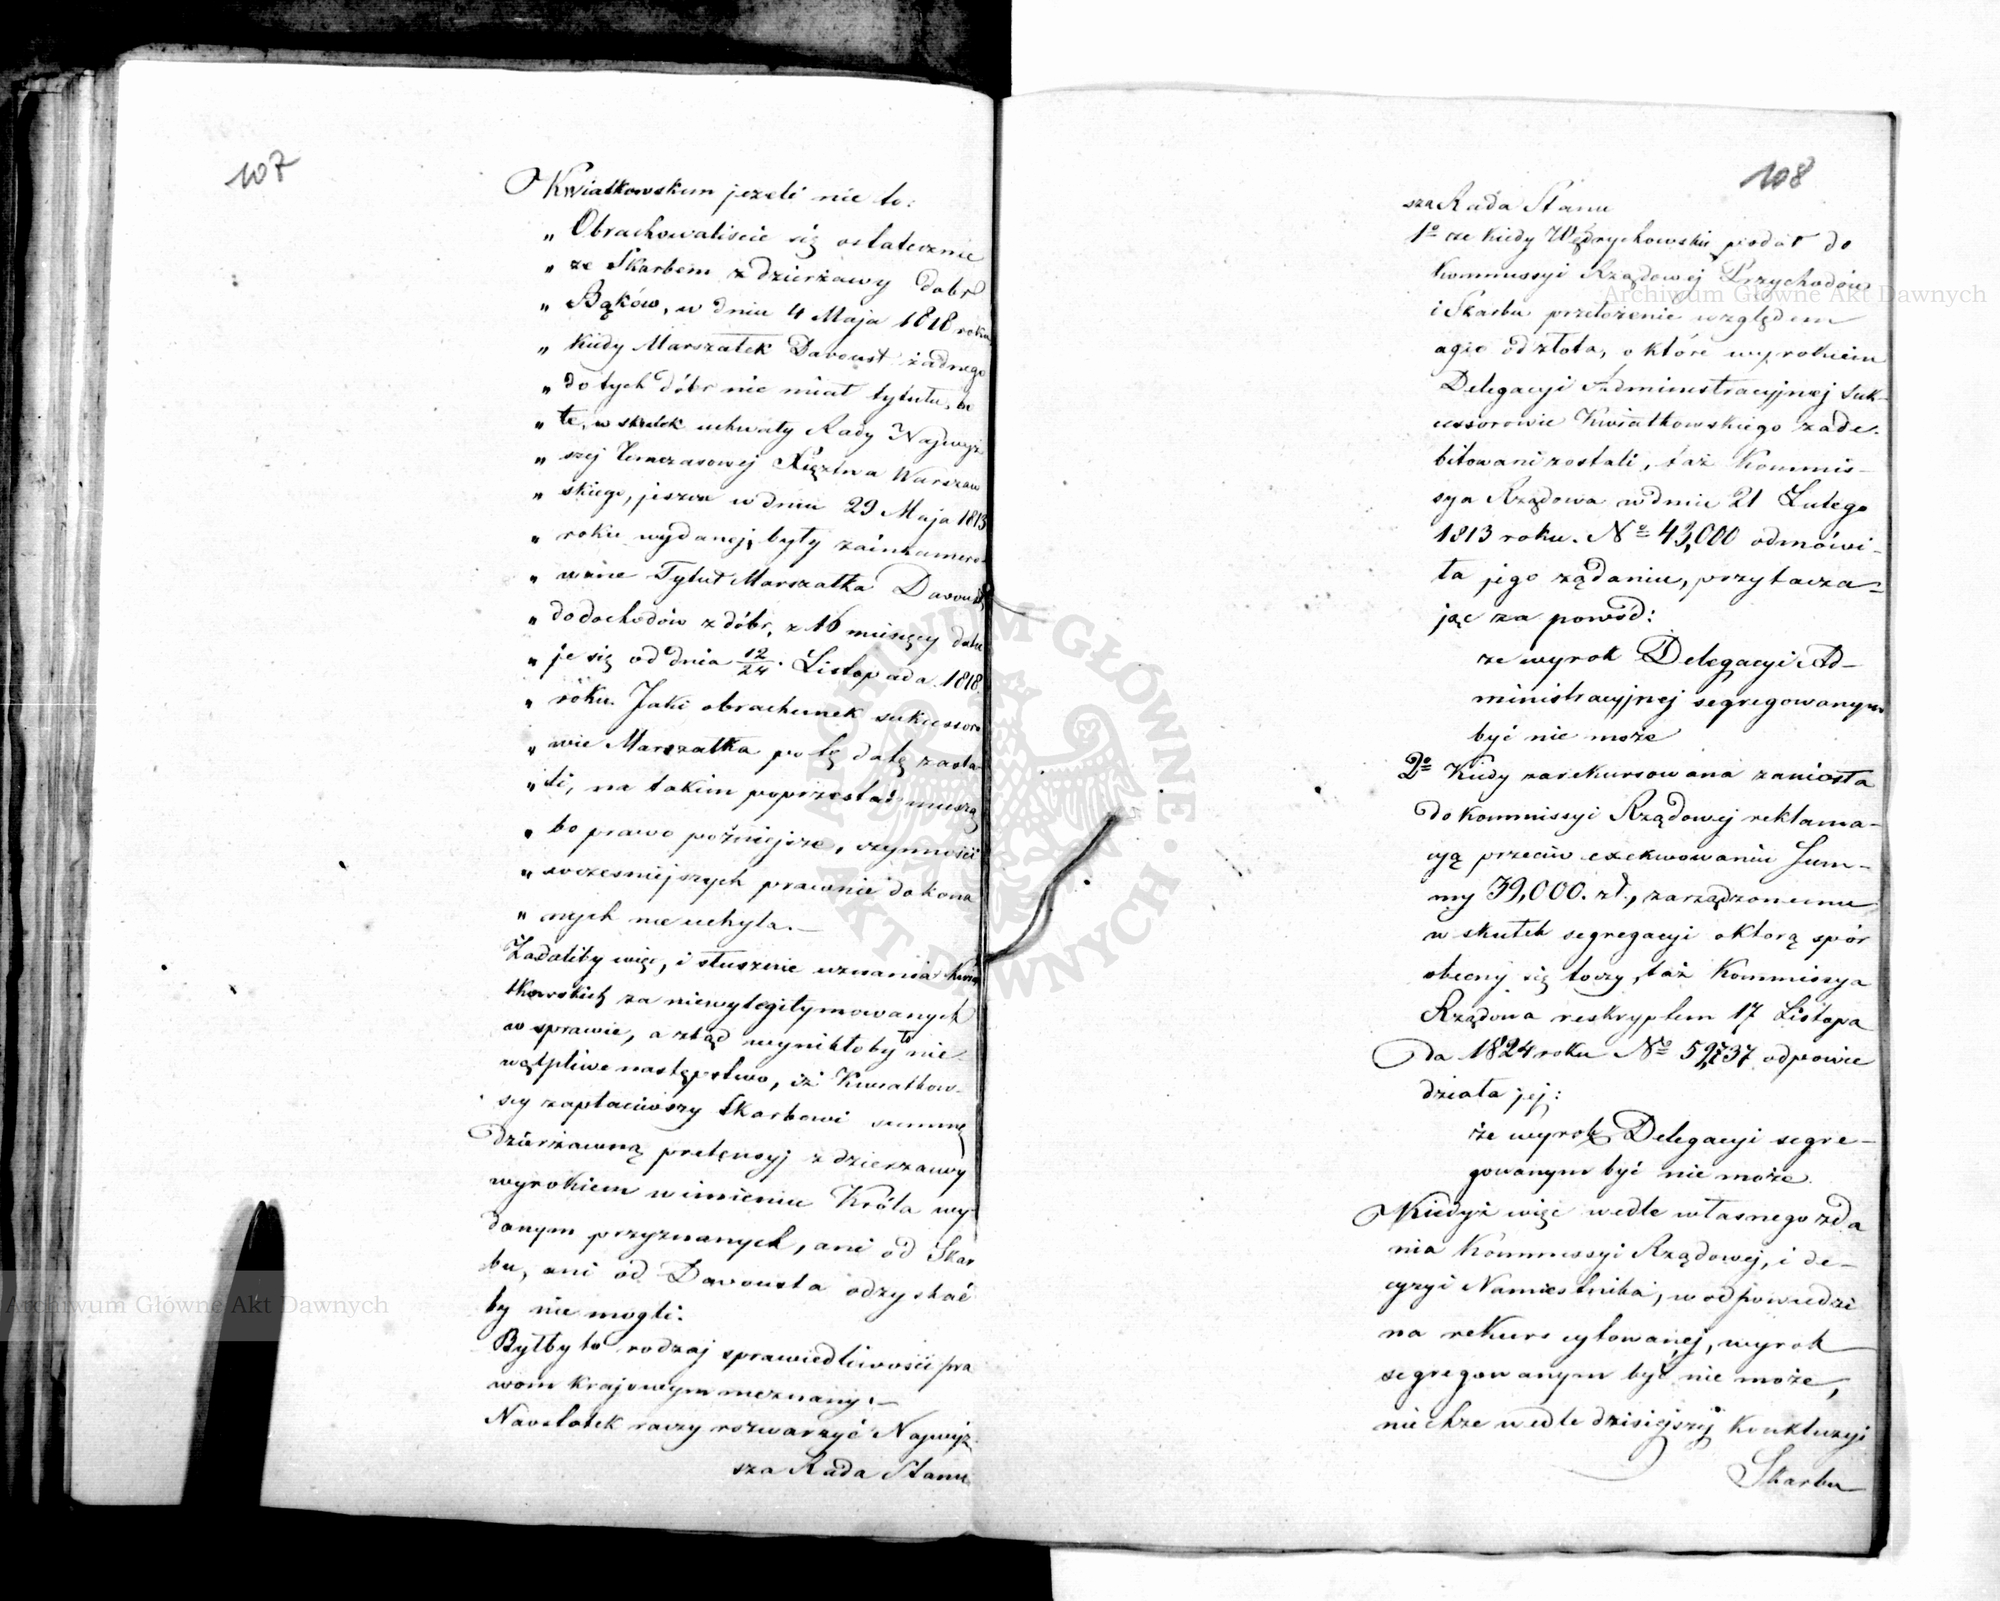 107
Kwiatkowskim jeżeli nie to:
„ Obrachowaliście się ostatecznie
„ ze Skarbem z dzierżawy dóbr
„ Bąków, w dniu 4 Maja 1818 roku
„ kiedy Marszałek Davoust żadnego
„ do tych dóbr nie miał tytułu, bo
„ te, w skutek uchwały Rady Najwyż
„ szej Tymczasowej Xięztwa Warszaw
„ skiego, jeszcze w dniu 29 Maja 1813
„ roku wydanej, były zainkamero-
„ wane Tytuł Marszałka Davoust,
„ do dochodów z dóbr, z 16 miesięcy datu
„ je się od dnia 12/24 Listopada 1818
„ roku. Jaki obrachunek sukcessoro
„ wie Marszałka po tę datę zasta-
„ li, na takim poprzestać muszą
„ bo prawo późniejsze, czynności
„ wcześniejszych prawnie dokona
„ nych nie uchyla.—
Żądaliby więc, i słusznie uznania Kwia
tkowskich za niewylegitymowanych
w sprawie, a ztąd wynikłoby to nie-
wątpliwe następstwo, iż Kwiatkow-
scy zapłaciwszy Skarbowi summę
dzierżawną pretensyj z dzierżawy
wyrokiem w imieniu Króla wy-
danym przyznanych, ani od Skar
bu, ani od Davousta odzyskać
by nie mogli.
Byłby to rodzaj sprawiedliwości pra
wom krajowym nieznany.—
Nawolotek raczy rozważyć Najwyż-
sza Rada Stanu
108
sza Rada Stanu
1º że kiedy Wędrychowski podał do
Kommissyi Rządowej Przychodów
i Skarbu przełożenie względem
agio od złota, o które wyrokiem
Delegacyi Administracyjnej Suk-
cessorowie Kwiatkowskiego zade-
bitowani zostali, taż Kommis-
sya Rządowa w dniu 21 Lutego
1813 roku. Nº 43,000 odmówi-
ła jego żądaniu, przytacza-
jąc za powód:
że wyrok Delegacyi Ad-
ministracyjnej segregowanym
być nie może
2º Kiedy zarekursowana zaniosła
do Kommissyi Rządowej reklama-
cyą przeciw exekwowaniu Sum-
my 39,000. zł., zarządzonemu
w skutek segregacyi o którą spór
obecny się toczy, taż Kommissya
Rządowa reskryptem 17 Listopa
da 1824 roku Nº 59,737 odpowie
działa jej:
że wyrok Delegacyi segre-
gowanym być nie może.
Kiedyż więc wedle własnego zda
nia Kommissyi Rządowej, i de-
cyzyi Namiestnika, w odpowiedzi
na rekurs cytowanej, wyrok
segregowanym być nie może,
niechże wedle dzisiejszej konkluzyi
Skarbu
Archiwum Główne Akt Dawnych
Archiwum Główne Akt Dawnych
ARCHIWUM GŁÓWNE AKT DAWNYCH